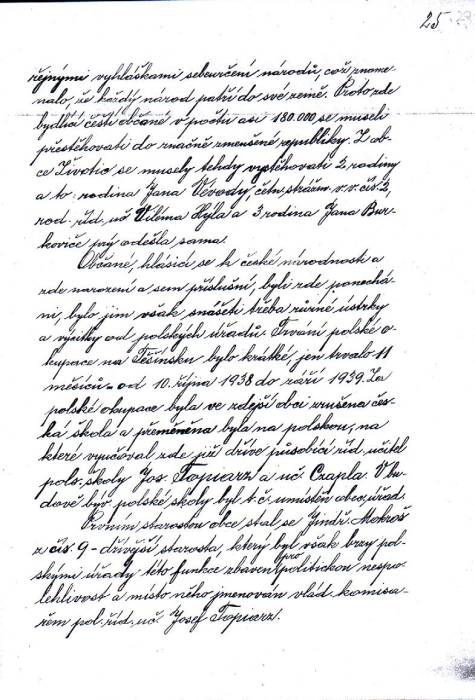 25
řejnými vyhláškami sebeurčení národů, což zname-
nalo, že každý národ patří do své země. Proto zde
bydlící čeští občané v počtu asi 180.000, se museli
přestěhovati do značně zmenšené republiky. Z ob-
ce Životic se musely tehdy vystěhovati 2 rodiny
a to: rodina Jana Vévody, četn. strážm. v. v. čís. 2,
rod. říd. uč Viléma Hýla a 3 rodina Jana Bur-
koviče jný odešla sama.
Občané, hlásící se k české národnosti a
zde narození a sem příslušní, byli zde ponechá-
ni, bylo jim však snášeti třeba různé ústrky
a výtky od polských úřadů. Trvání polské o-
kupace na Těšínsku bylo krátké, jen trvalo 11
měsíců - od 10. října 1938 do září 1939. Za
polské okupace byla ve zdejší obci zrušena čes-
ká škola a přeměněna byla na polskou, na
které vyučoval zde již dříve působící říd. učitel
pols. školy Jos. Topiarz a uč. Czapla. V bu-
dově býv. polské školy byl t. č. umístěn obec. úřad
Prvním starostou obce stal se Jindř. Mokroš
z čís. 9 - dřívější starosta, který byl však brzy pol-
skými úřady této funkce zbaven pro politickou nespo-
lehlivost a místo něho jmenován vlád. komisa-
řem pol. říd. uč. Josef Topiarz.